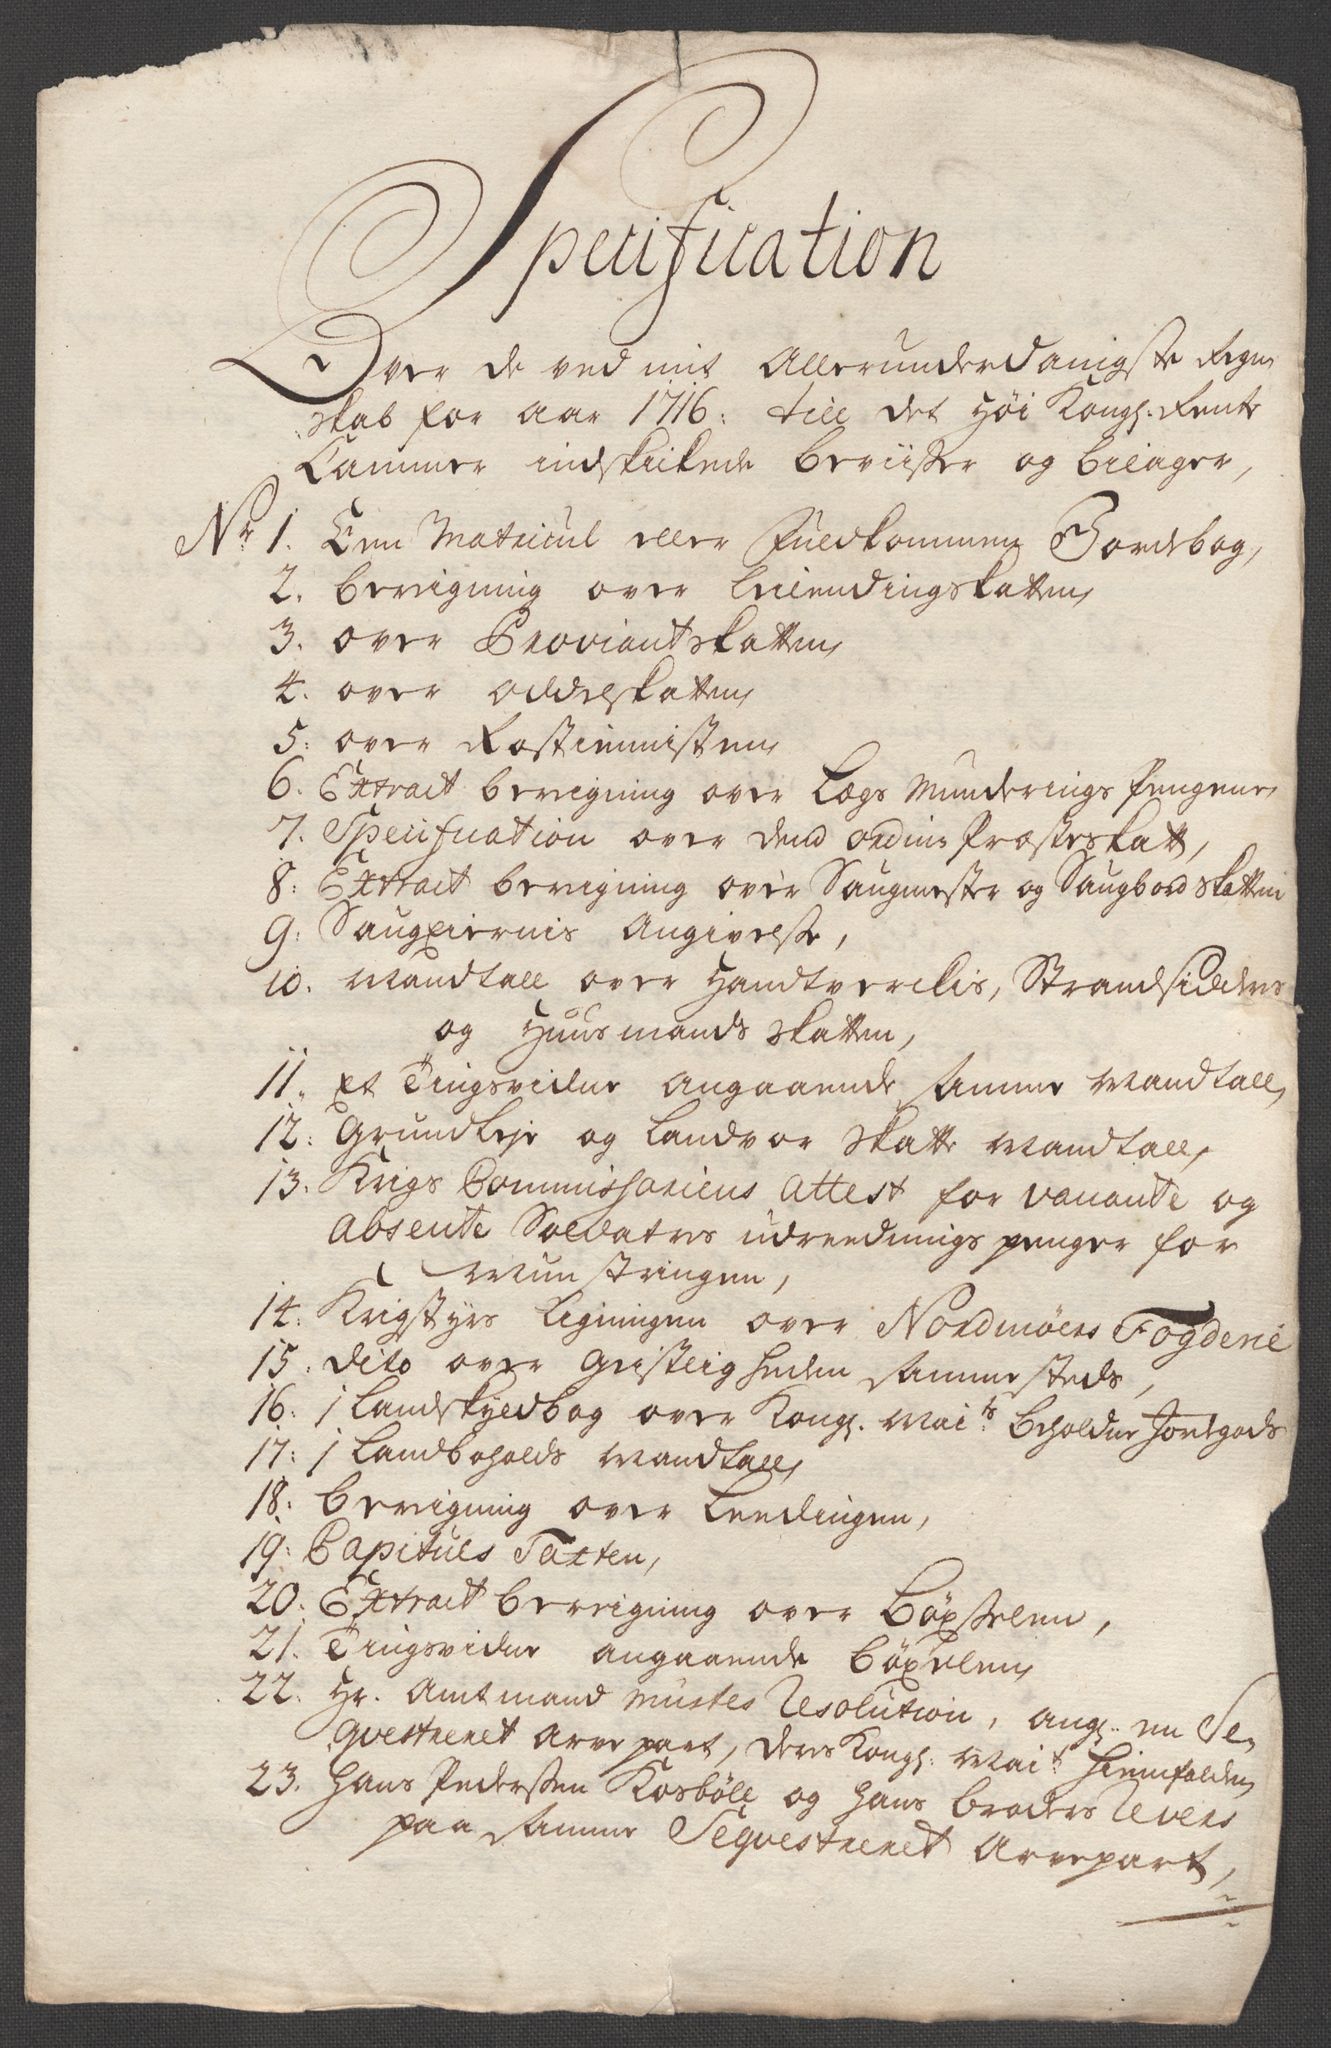 Specification
Over de ved mit Allerunderdanigste Regn
skab for aar 1716: till det Høi Kongl. Rente
Cammer indskickede beviisser og bilager,
Nr 1. Een Matricul eller Fuldkommen Jordebog,
2. beregning over Leilendingskatten
3. over Proviantskatten
4. over oddelskatten
5: over Rostienisten
6. Extract beregning over Lægs Munderings pengene
7. Specification over dend ordin: Præsteskatt,
8: Extract beregning over Saugmester og Saugbord skatten
9: Saugeiernis Angivelsse,
10. Mandtall over Handtverckis, Strandsidders
og Huusmands skatten,
11. et Tingsvidne angaaende samme Mandtall,
12: Grundleje og Landvor skatte Mandtall,
13. Krigs Commissariens Attest for vacante og
Absente Soldaters udreednings penger for
Munstringen,
14: Krigstyrs Ligningen over Nordmøers Fogderie
15. dito over Geistligheden sammesteds,
16: 1 Landskyldbog over Kongl. Maits beholdne Jordgods
17: 1 Landboholds Mandtall,
18: beregning over Leedingen,
19: Capituls Taxten,
20. Extract beregning over bøxselen,
21. Tingsvidne angaaende bøxelen,
22. Hr. Amtmand Resolution, angl. en Se-
qvestreret Arvepart, deres Kongl: Mait hiemfalden,
23. Hans Pedersen Kosböll og Hans broders Revers
paa samme Seqvestreret Arvepart,